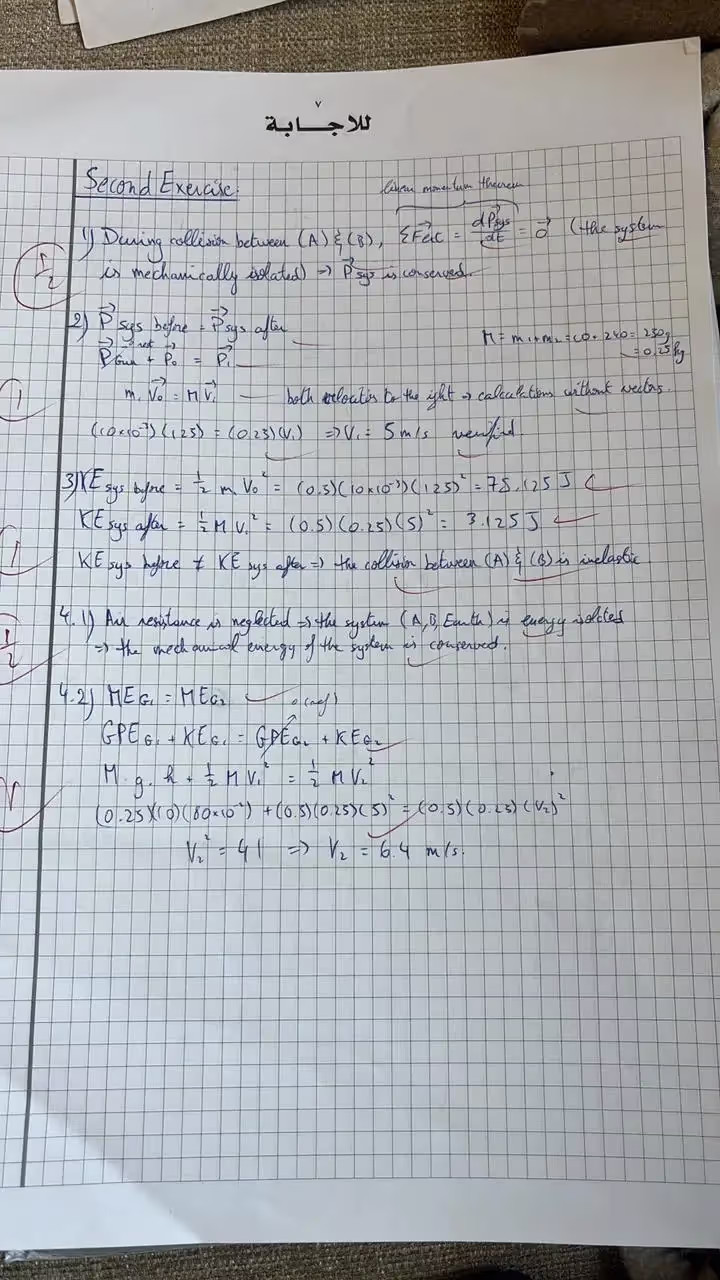 ٧
للاجـــابـة
Second Exercise:
linear momentum theorem
1) During collision between (A) & (B), ΣF⃗ext = dP⃗sys/dt = 0⃗ (the system
is mechanically isolated) ⇒ P⃗sys is conserved.
1/2
2) P⃗sys before = P⃗sys after
M = m1+m2 = 10+240 = 250g
= 0.25kg
+ P⃗0 = P⃗1
1
m1 V⃗0 = M V⃗1 both velocities to the right ⇒ calculations without vectors.
(10×10⁻³)(125) = (0.25)(V1) ⇒ V1 = 5 m/s verified.
3) KE sys before = 1/2 m1 V0² = (0.5)(10×10⁻³)(125)² = 78.125 J
KE sys after = 1/2 M V1² = (0.5)(0.25)(5)² = 3.125 J
1
KE sys before ≠ KE sys after ⇒ the collision between (A) & (B) is inelastic
4.1) Air resistance is neglected ⇒ the system (A,B,Earth) is energy isolated
1/2
⇒ the mechanical energy of the system is conserved.
4.2) MEG1 = MEG2
0 (ref)
GPEG1 + KEG1 = GPEG2 + KEG2
M.g.h + 1/2 M V1² = 1/2 M V2²
(0.25)(10)(80×10⁻²) + (0.5)(0.25)(5)² = (0.5)(0.25)(V2)²
V2² = 41 ⇒ V2 = 6.4 m/s.